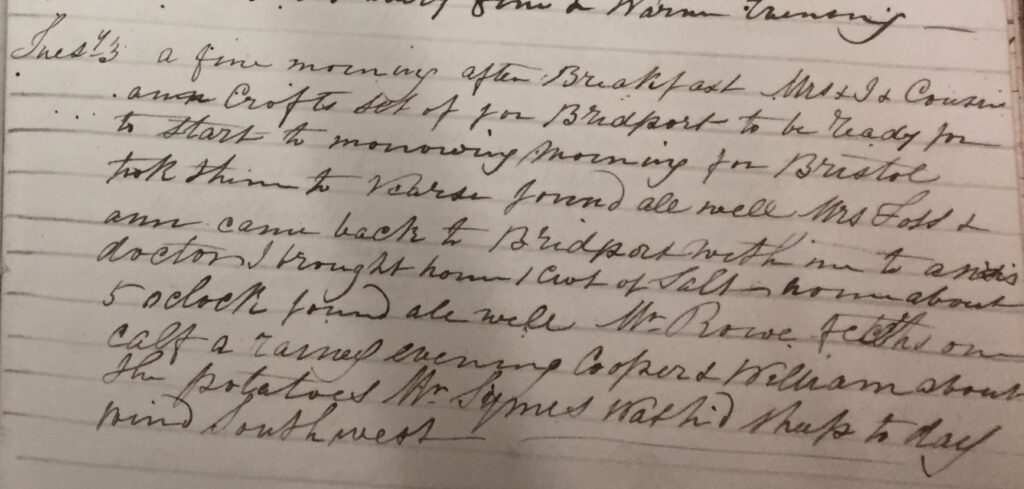 very fine & Warm Evening
Tuesy 3 a fine morning after Breakfast Mrs & I & Cousin
ann Crofts set of for Bridport to be ready for
to start to morrowing morning for Bristol
took them to Vearse found all well Mrs Foss &
ann came back to Bridport with me to a
doctor I brought home 1 Cwt of Salt home about
5 oclock found all well Mr Rowe one
calf a rainey evening Cooper & William about
the potatoes Mr Symes Wash'd sheep to day
wind South west